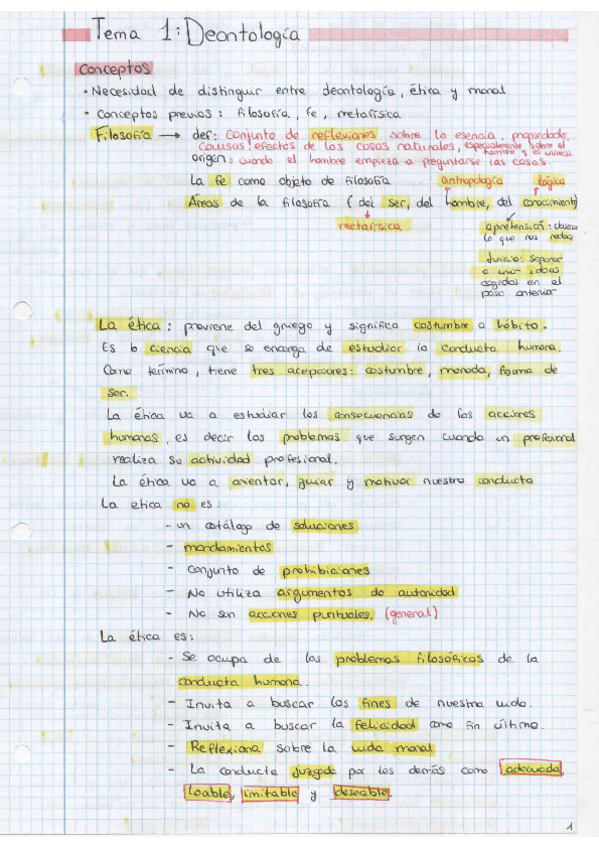 Tema 1: Deontología
Conceptos
• Necesidad de distinguir entre deontología, ética y moral
• Conceptos previos: Filosofía, fe, metafísica
Filosofía → def: conjunto de reflexiones sobre la esencia, propiedades,
causas y efectos de las cosas naturales, especialmente sobre el
hombre y el universo
origen: cuando el hombre empieza a preguntarse las cosas
La fe como objeto de filosofía
antropología
lógica
Áreas de la filosofía (del ser, del hombre, del conocimiento)
metafísica
aprehensión:
lo que nos rodea
Juicio: separar
o unir ideas
cogidas en el
paso anterior
La ética: proviene del griego y significa costumbre o hábito.
Es la ciencia que se encarga de estudiar la conducta humana.
Como término, tiene tres acepciones: costumbre, morada, forma de
ser.
La ética va a estudiar las consecuencias de las acciones
humanas, es decir los problemas que surgen cuando un profesional
realiza su actividad profesional.
La ética va a orientar, guiar y motivar nuestra conducta
La etica no es:
- un catálogo de soluciones
- mandamientos
- conjunto de prohibiciones
- No utiliza argumentos de autoridad
- No son acciones puntuales. (general)
La ética es:
- Se ocupa de los problemas filosóficos de la
conducta humana.
- Invita a buscar los fines de nuestra vida.
- Invita a buscar la felicidad como fin último.
- Reflexiona sobre la vida moral
- La conducta juzgada por los demás como adecuada,
loable, imitable y deseable.
1